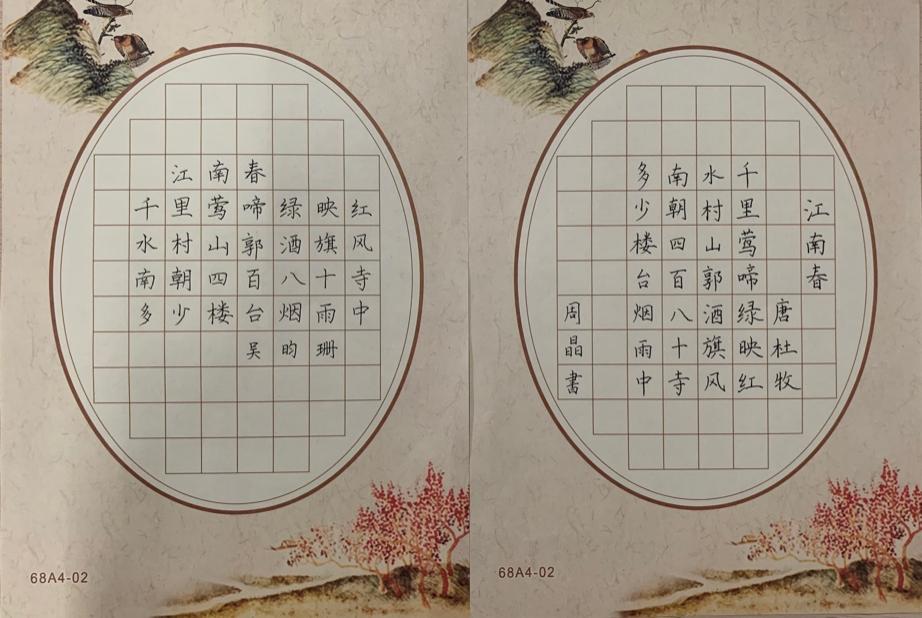 江南春
千里莺啼绿映红
水村山郭酒旗风
南朝四百八十寺
多少楼台烟雨中
吴昀珊
68A4-02
江南春
唐杜牧
千里莺啼绿映红
水村山郭酒旗风
南朝四百八十寺
多少楼台烟雨中
周晶书
68A4-02